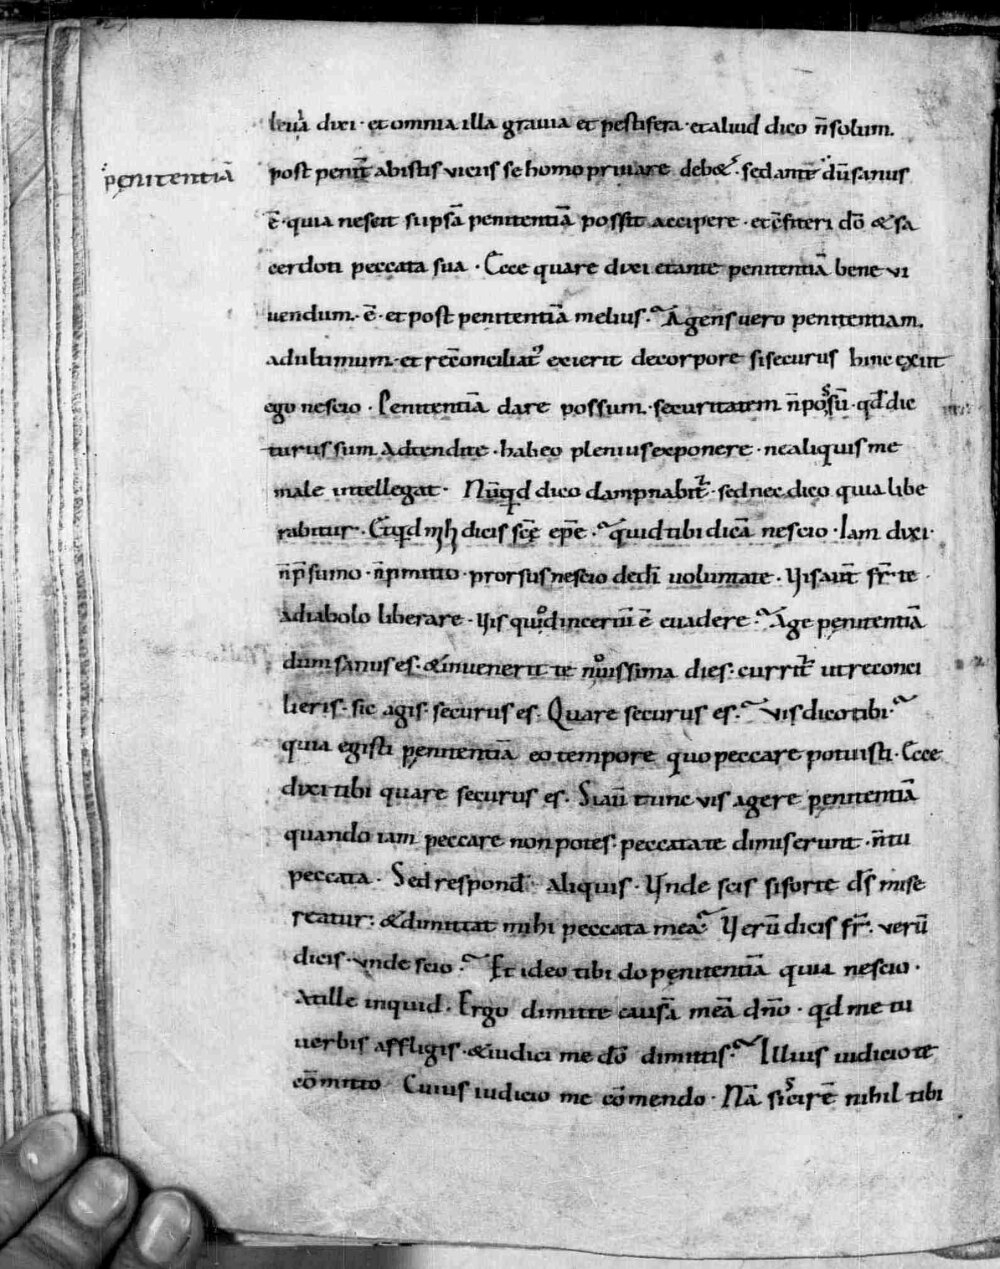 leuia dixi · et omnia illa grauia et pestifera · et aliud dico n̄ solum.
pęnitentiā
post penit̄ ab istis viciis se homo priuare debet · sed ante dū sanus
ē · quia nescit si ipsā penitentiā possit accipere · et c̄fiteri dō & sa
cerdoti peccata sua · Ecce quare dixi et ante penitentiā bene vi
uendum · ē · et post penitentiā melius · Agens uero penitentiam.
ad ultimum · et recōnciliat᷒ exierit de corpore si securus hinc exiit
ego nescio · Penitentiā dare possum · securitatem n̄ possū · qd dic
turus sum Adtendite · habeo plenius exponere · ne aliquis me
male intellegat · Nūqd dico dampnabit᷒ · sed nec dico quia libe
rabitur · Et qd mihi dicis sc̄e ep̄e · quid tibi dicā nescio · Iam dixi ·
n̄ p̄sumo · n̄ p̄mitto · prorsus nescio de dī uoluntate · Vis aut̄ fr̄ · te
a diabolo liberare · Vis quod incertū ē euadere · Age pęnitentiā
dum sanus es · & inuenerit te nouissima dies · currit᷒ ut reconci
lieris · sic agis · securus es · Quare securus es · vis dico tibi ·
quia egisti pęnitentiā eo tempore quo peccare potuisti · Ecce
dixi tibi quare securus es · Si aū tunc vis agere pęnitentiā
quando iam peccare non potes · peccata te dimiserunt · n̄ tu
peccata · Sed respond̄ aliquis · Vnde scis si forte d̄s mise
reatur · & dimittat mihi peccata mea · Verū dicis fr̄ · verū
dicis · vnde scio · Et ideo tibi do pęnitentiā quia nescio ·
At ille inquid · Ergo dimitte causā meā dn̄o · qd me tu
uerbis affligis · & iudici me dō dimittis · Illius iudicio te
cōmitto Cuius iudicio me cōmendo · Nā si scirē nihil tibi